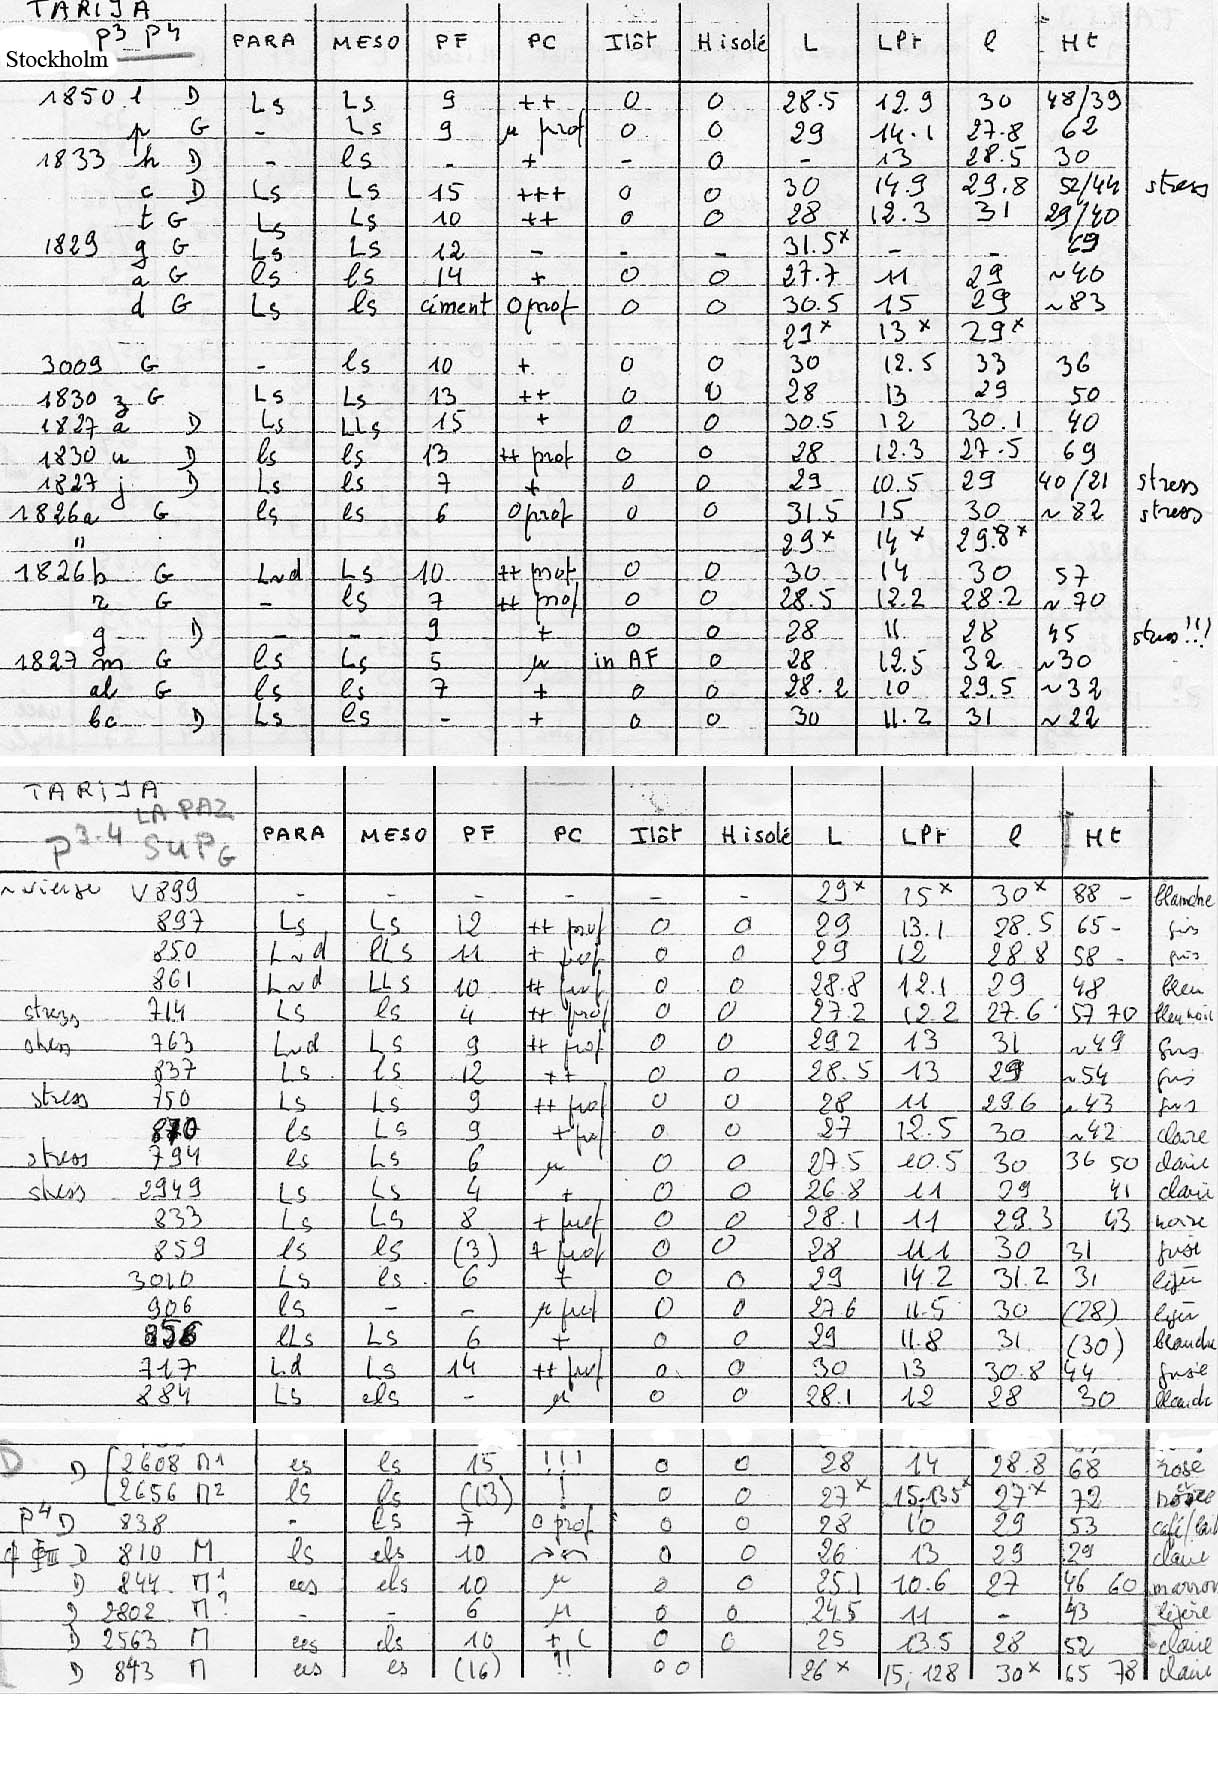 TARIJA
P3 P4
Stockholm PARA MESO PF PC Ilôt H isolé L LPr l Ht
1850 l D Ls Ls 9 ++ 0 0 28.5 12.9 30 48/39
p G - Ls 9 µ prof 0 0 29 14.1 27.8 62
1833 h D - ls - + - 0 - 13 28.5 30
c D Ls Ls 15 +++ 0 0 30 14.9 29.8 52/44 stress
t G Ls Ls 10 ++ 0 0 28 12.3 31 29/40
1829 g G Ls Ls 12 - - - 31.5x - - 69
a G ls ls 14 + 0 0 27.7 11 29 ~40
d G Ls ls ciment 0 prof 0 0 30.5 15 29 ~83
29x 13x 29x
3009 G - ls 10 + 0 0 30 12.5 33 36
1830 z G Ls Ls 13 ++ 0 0 28 13 29 50
1827 a D Ls LLs 15 + 0 0 30.5 12 30.1 40
1830 u D ls ls 13 ++ prof 0 0 28 12.3 27.5 69
1827 j D Ls ls 7 + 0 0 29 10.5 29 40/21 stress
1826a G ls ls 6 0 prof 0 0 31.5 15 30 ~82 stress
" 29x 14x 29.8x
1826b G Lnd Ls 10 ++ prof 0 0 30 14 30 57
r G - ls 7 ++ prof 0 0 28.5 12.2 28.2 ~70
g D - - 9 + 0 0 28 11 28 45 stress!!!
1827 m G ls Ls 5 µ in AF 0 28 12.5 32 ~30
al G ls ls 7 + 0 0 28.2 10 29.5 ~32
bc D Ls ls - + 0 0 30 11.2 31 ~22
TARIJA
LA PAZ
P3.4 SUP G PARA MESO PF PC Ilôt H isolé L LPr l Ht
~vierge V899 - - - - - - 29x 15x 30x 88 - blanche
897 Ls Ls 12 ++ prof 0 0 29 13.1 28.5 65- gris
850 Lnd lLs 11 + prof 0 0 29 12 28.8 58 - gris
861 Lnd LLs 10 ++ prof 0 0 28.8 12.1 29 48 bleu
stress 714 Ls ls 4 ++ prof 0 0 27.2 12.2 27.6 57 70 bleu noir
stress 763 Lnd Ls 9 ++ prof 0 0 29.2 13 31 ~49 gris
837 Ls ls 12 ++ 0 0 28.5 13 29 ~54 gris
stress 750 Ls Ls 9 ++ prof 0 0 28 11 29.6 ~43 gris
870 ls Ls 9 + prof 0 0 27 12.5 30 ~42 claire
stress 794 ls Ls 6 µ 0 0 27.5 10.5 30 36 50 claire
stress 2949 Ls Ls 4 + 0 0 26.8 11 29 41 claire
833 Ls Ls 8 + prof 0 0 28.1 11 29.3 43 noire
859 ls ls (3) + prof 0 0 28 11.1 30 31
3010 Ls ls 6 + 0 0 29 14.2 31.2 31
906 ls - - µ prof 0 0 27.6 11.5 30 (28)
856 lLs Ls 6 + 0 0 29 11.8 31 (30) blanche
717 Ld Ls 14 ++ prof 0 0 30 13 30.8 44
884 Ls els - µ 0 0 28.1 12 28 30 blanche
D D 2608 M1 es ls 15 !!! 0 0 28 14 28.8 68 rosé
2656 M2 ls ls (13) ! 0 0 27x 15,135x 27x 72
P4 D 838 - ls 7 0 prof 0 0 28 10 29 53 café/lait
D 810 M ls els 10 0 0 26 13 29 29 claire
D 844 M1? ees els 10 µ 0 0 25.1 10.6 27 46 60 marron
2802 M? - - 6 µ 0 0 24.5 11 - 43 légère
D 2563 M ees els 10 + ( 0 0 25 13.5 28 52 claire
D 843 M ees es (16) !! 0 0 26x 15, 128 30x 65 78 claire